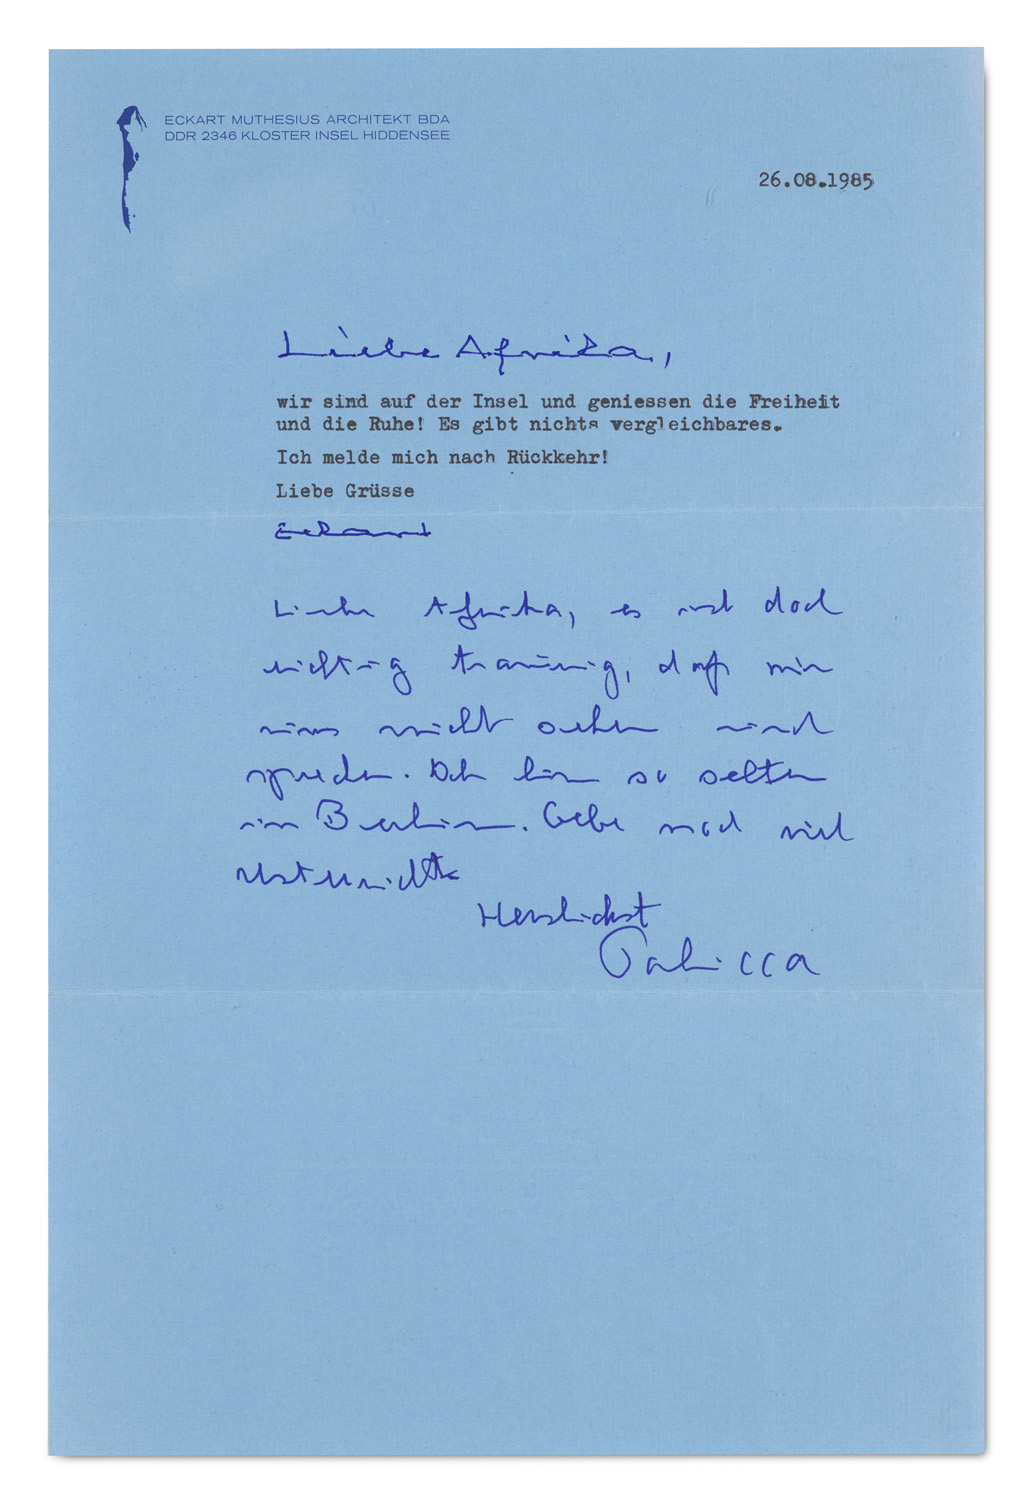 ECKART MUTHESIUS ARCHITEKT BDA
DDR 2346 KLOSTER INSEL HIDDENSEE
26.08.1985
Liebe Afrika,
wir sind auf der Insel und geniessen die Freiheit
und die Ruhe! Es gibt nichts vergleichbares.
Ich melde mich nach Rückkehr!
Liebe Grüsse
Eckart
Liebe Afrika, es ist doch
richtig traurig, daß wir
uns nicht sehen und
sprechen. Ich bin so selten
in Berlin. Gebe noch viel
Unterricht
Herzlichst